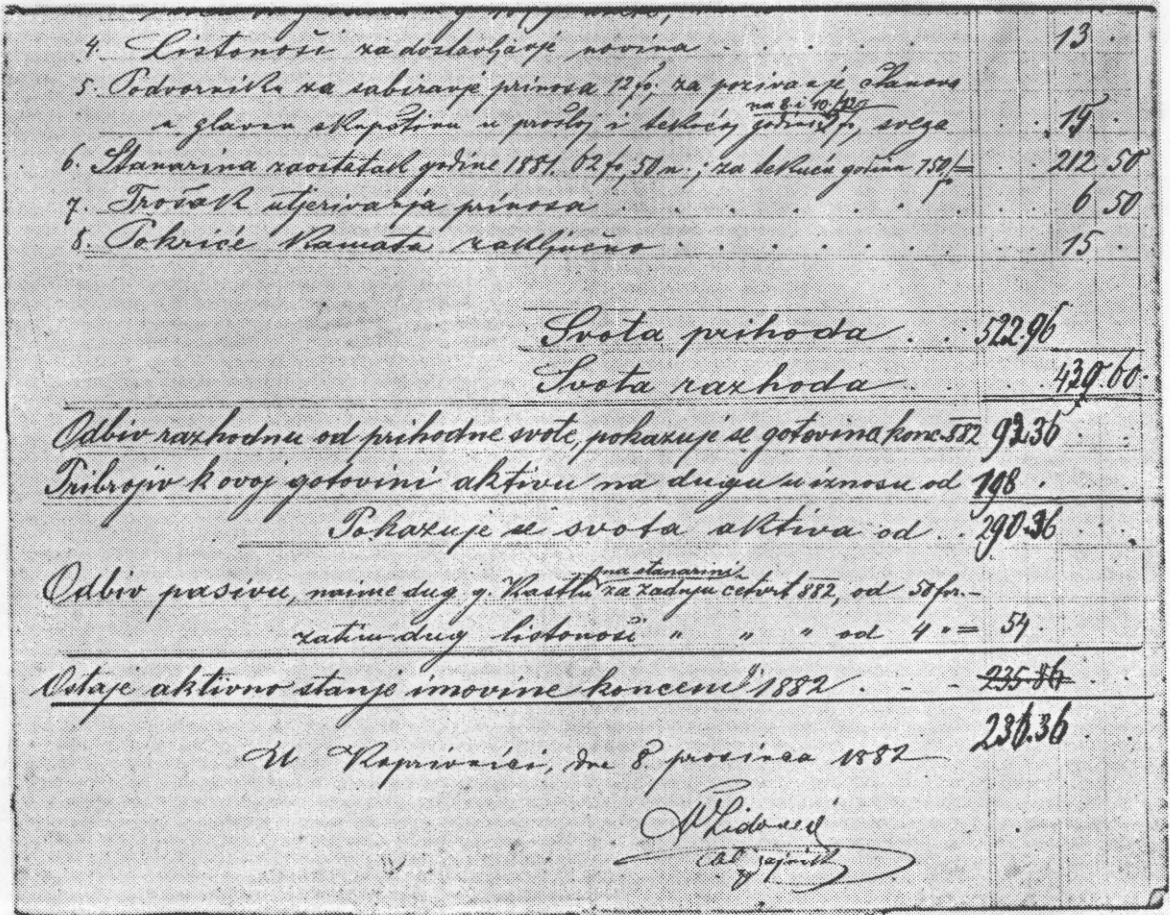 4. Listonoši za dostavljanje novina . . . . . 13 .
5. Podvorniku za sabiranje prinosa 12 fr, za pozivanje članova
na 8 i 10/12
u glavnu skupštinu u prošloj i tekućoj godini fr, svega
6. Stanarina zaostatak godine 1881. 62 fr, 50 n.; za tekuću godinu 150 fr = . 212 50
7. Trošak utjerivanja prinosa . . . . . . . 6 50
8. Pokriće kamata zaključno . . . . . . . 15 .
Svota prihoda . . 522.96
Svota razhoda . . . 430.60
Odbiv razhodnu od prihodne svote, pokazuje se gotovina konc. 882 92.36
Pribrojiv k ovoj gotovini aktivu na dugu u iznosu od 198 .
Pokazuje se svota aktiva od . . 290.36
na stanarini
Odbiv pasivu, naime dug g. za zadnju četvrt 882, od 50 fr. –
zatim dug listonoši " " " od 4 " = 54.
Ostaje aktivno stanje imovine koncem 1882 . - - 235.86
236.36
U Koprivnici, dne 8. prosinca 1882